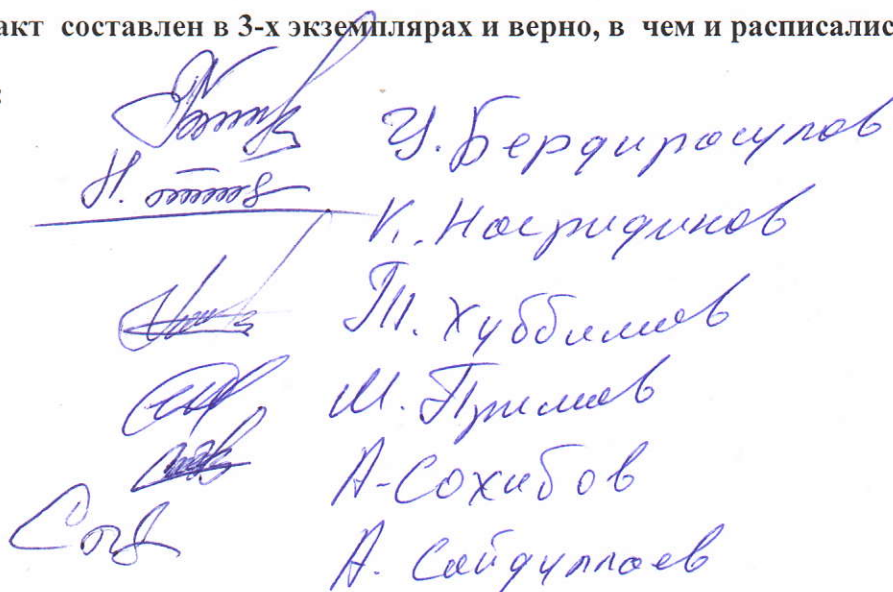 акт составлен в 3-х экземплярах и верно, в чем и расписалис
:
У. Бердирасулов
К. Насридинов
Т. Хуббимов
М. Примов
А-Сохибов
А. Сайдуллаев